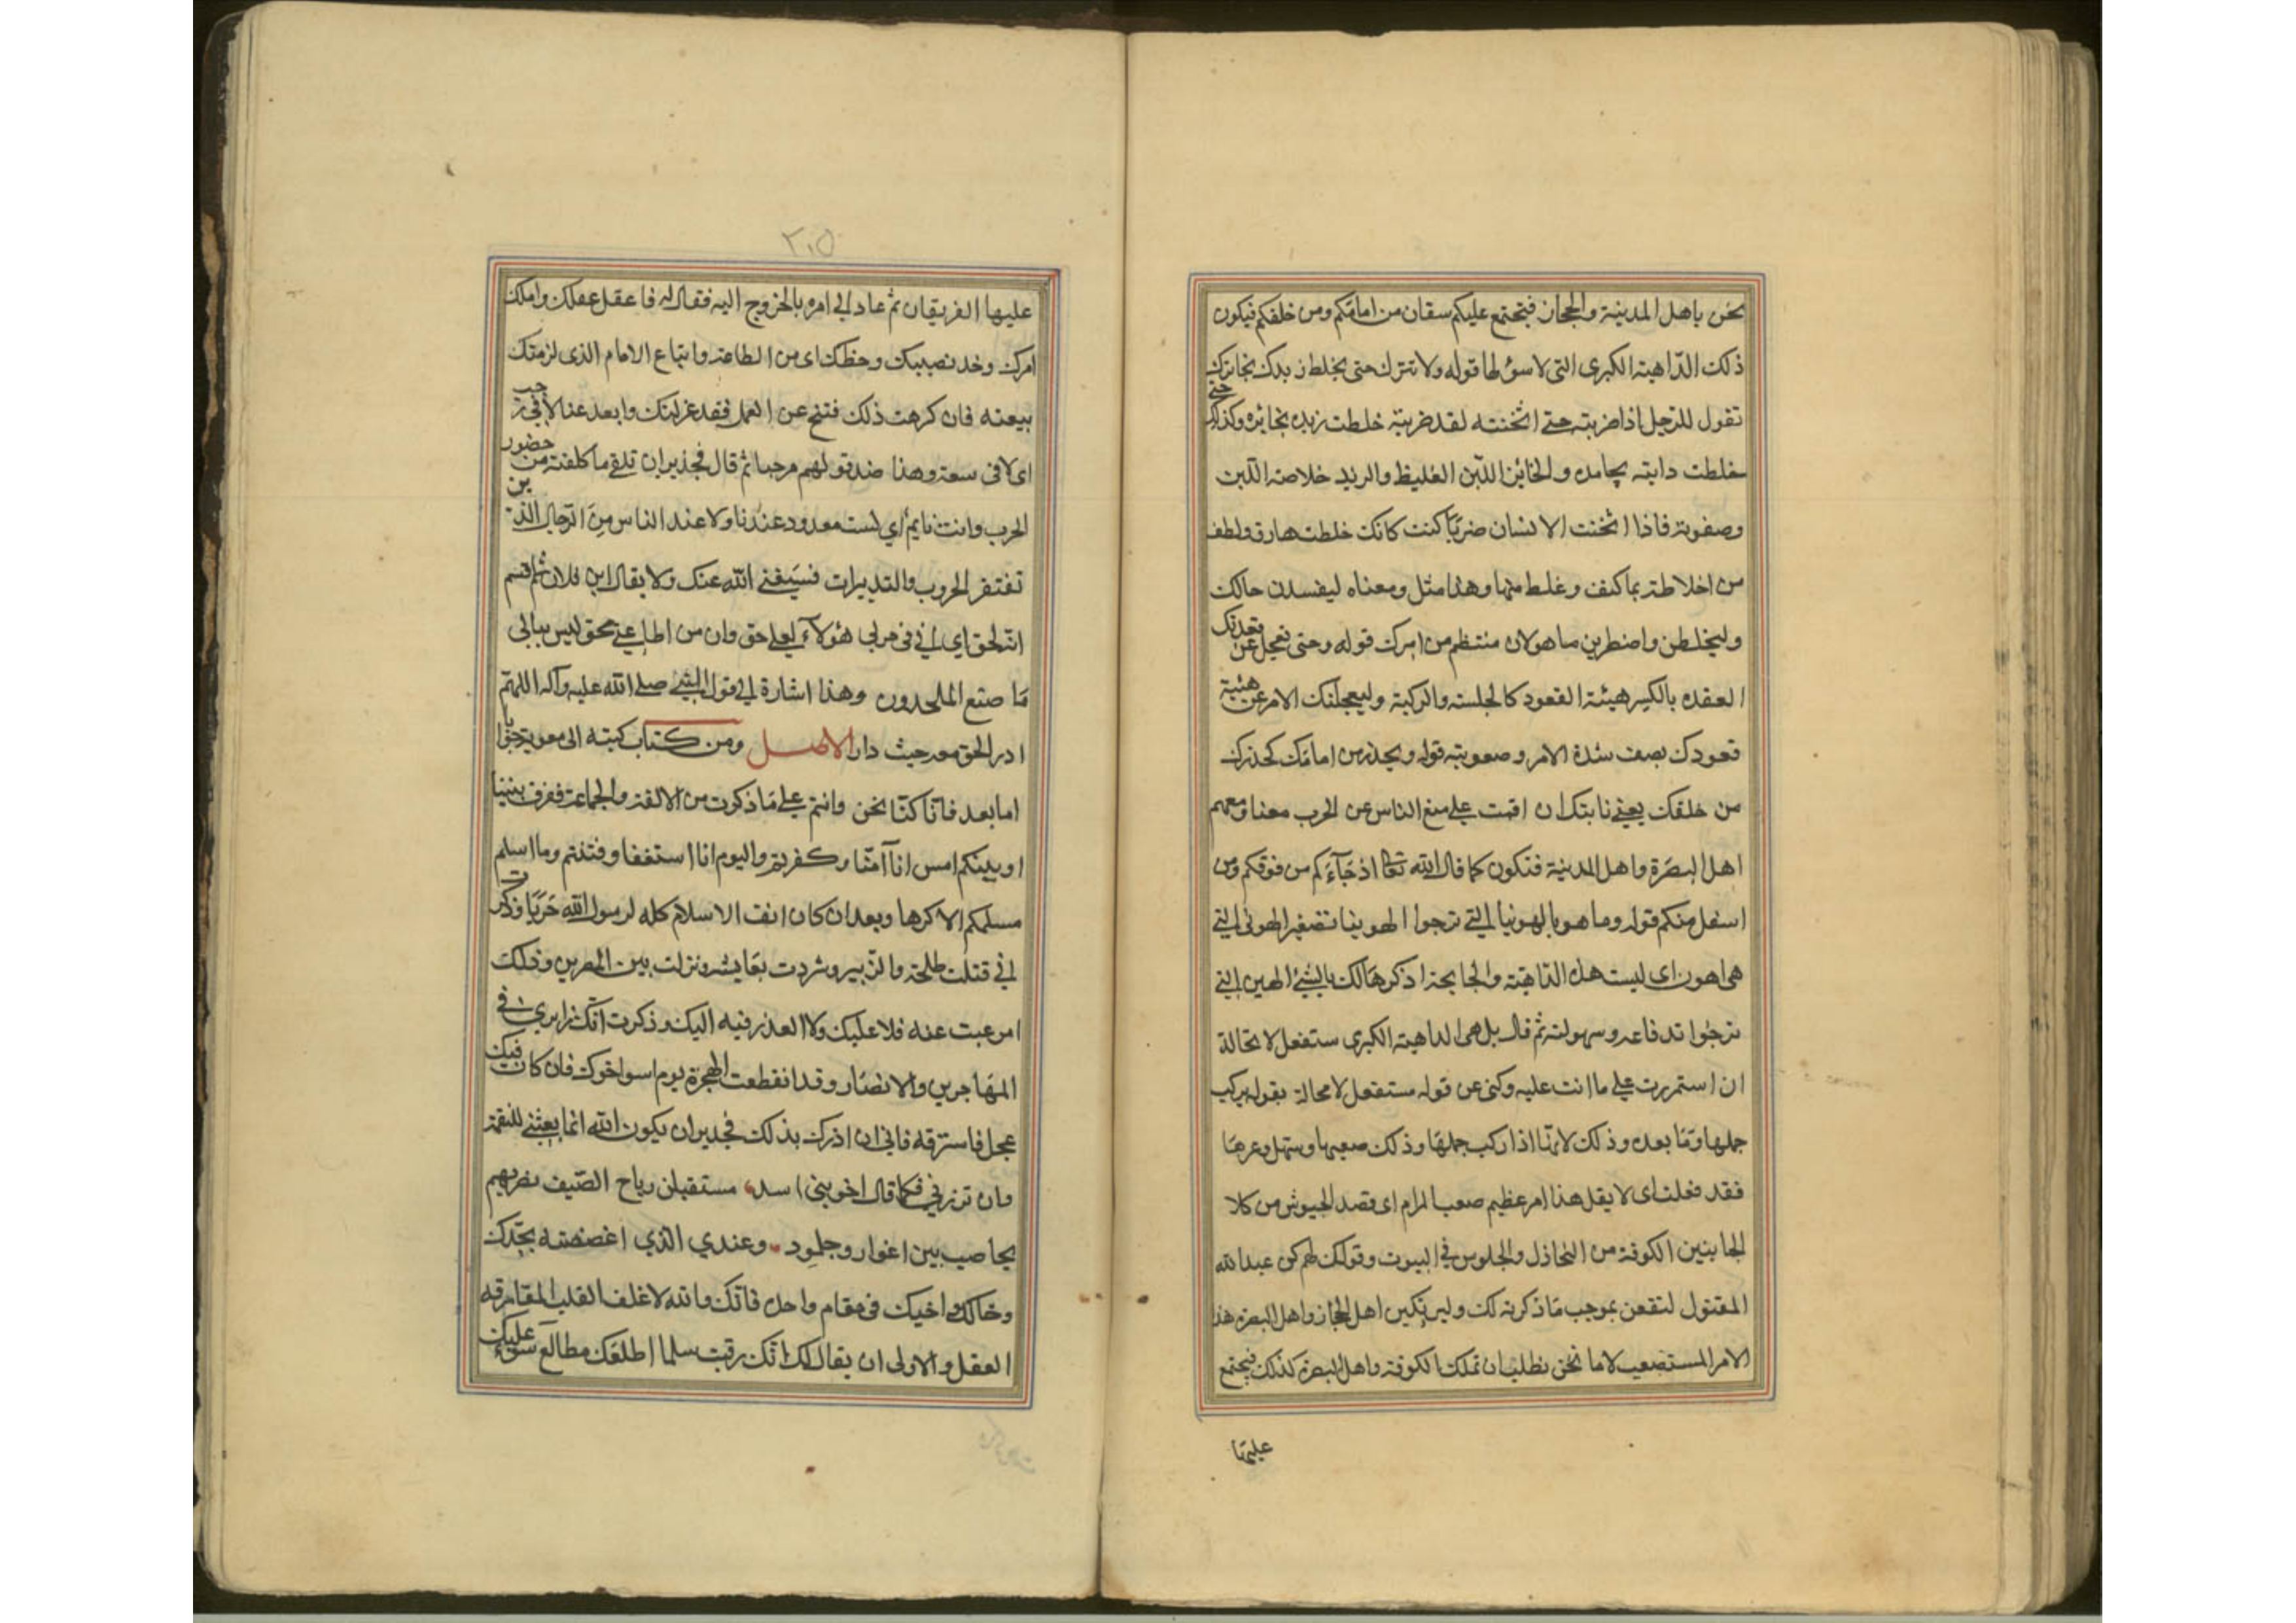 نحن باهل المدينة والحجاز فيجتمع عليكم سقان من امامكم ومن خلفكم فيكون
ذلك الداهية الكبرى التى لا سؤ لها قوله ولا تترك حتى يخلط زبدك بخاثرك
تقول للرجل اذا ضربته حتى اثخنته لقد ضربته خلطت زبده بخاثره وكذلك حتى
خلطت دابته بجامده والخاثر اللبن الغليظ والزبد خلاصة اللبن
وصفوته فاذا اثخنت الانسان ضربا كنت كانك خلطت ما رق ولطف
من اخلاطه بما كثف وغلط منها وهذا مثل ومعناه ليفسدن حالك
وليخلطن واضطربن ما هو لان منتظم من امرك قوله وحتى تعجل عن قعدتك
القعده بالكسر هيئة القعود كالجلسته والركبة وليعجلنك الامر عن هيئة
قعودك بصف شدة الامر وصعوبته قوله وتحذر من امامك كحذرك
من خلفك يعنى نا بتك ان اقمت على منع الناس عن الحرب معنا ومعهم
اهل البصرة واهل المدينة فتكون كما قال الله تعا اذ جآءكم من فوقكم ومن
اسفل منكم قوله وما هو بالهوينا التى ترجوا الهوينا تصغير الهونى التى
هى اهون اى ليست هذه الداهية والجابحة اذكرها لك بالشئ الهين التى
ترجوا تدفاعه وسهولته ثم قال بل هى الداهية الكبرى ستفعل لا محالة
ان استمررت على ما انت عليه وكنى عن قوله ستفعل لا محالة بقوله يركب
جملها وما بعده وذلك لانها اذا ركب جملها وذلك صعبها وسهل وعرها
فقد فعلت اى لا يقل هذا امر عظيم صعب المرام اى قصد الجيوش من كلا
الجانبين الكوفة من التخاذل والجلوس فى البيوت وقولك لهم كن عبد الله
المقتول لتقعن بموجب ما ذكرته لك وليرتكبن اهل الحجاز واهل البصرة هذا
الامر المستصعب لاما نحن نطلب ان تملك الكوفة واهل البصرة كذلك فيجتمع
عليها
٢٠٥
عليها الفريقان ثم عاد الى امره بالخروج اليه فقال له فاعقل عقلك واملك
امرك وخذ نصيبك وحظك اى من الطاعة واتباع الامام الذى لزمتك
بيعته فان كرهت ذلك فتنح عن العمل فقد عزلتك وابعد عنا لا فى رحب
اى لا فى سعة وهذا ضد قولهم مرحبا ثم قال فجدير ان تلقى ما كلفته من حضور
الحرب وانت نايم اي لست معدود عندنا ولا عند الناس من الرجال الذين
تفتقر الحروب والتدبيرات فسيغنى الله عنك ولا يقال اين فلان ثم اقسم
انه لحق اي انى فى حربى هؤلآء لعلى حق وان من اطاعنى محق ليس يبالى
ما صنع الملحدون وهذا اشارة الى قول النبى صلى الله عليه وآله اللهم
ادر الحق معه حيث دار الاصل ومن كتاب كتبه الى معوية جوابا
اما بعد فانا كنا نحن وانتم على ما ذكرت من الالفة والجماعة ففرق بيننا
او بينكم امس انا آمنا وكفرتم واليوم انا استقفا وفتنتم وما اسلم
مسلمكم الا كرها وبعد ان كان انف الاسلام كله لرسول الله حربا وذكرت
انى قتلت طلحة والزبير وشردت بعايشة ونزلت بين المصرين وذلك
امر غبت عنه فلا عليك ولا العذر فيه اليك وذكرت انك زايرى فى
المهاجرين والانصار وقد انقطعت الهجرة يوم اسر اخوك فان كان فيك
عجل فاسترقه فانى ان ازرك بذلك فجدير ان يكون الله انما بعثنى للنقمة
وان تزرني فكما قال اخو بنى اسد مستقبلن رياح الصيف تضربهم
بحاصب بين اغوار وجلمود وعندي الذي اغضضته بجدك
وخالك واخيك فى مقام واحد فانك والله لاغلف القلب المقارقه
العقل والاولى ان يقال لك انك رقيت سلما اطلعك مطالع سوء عليك